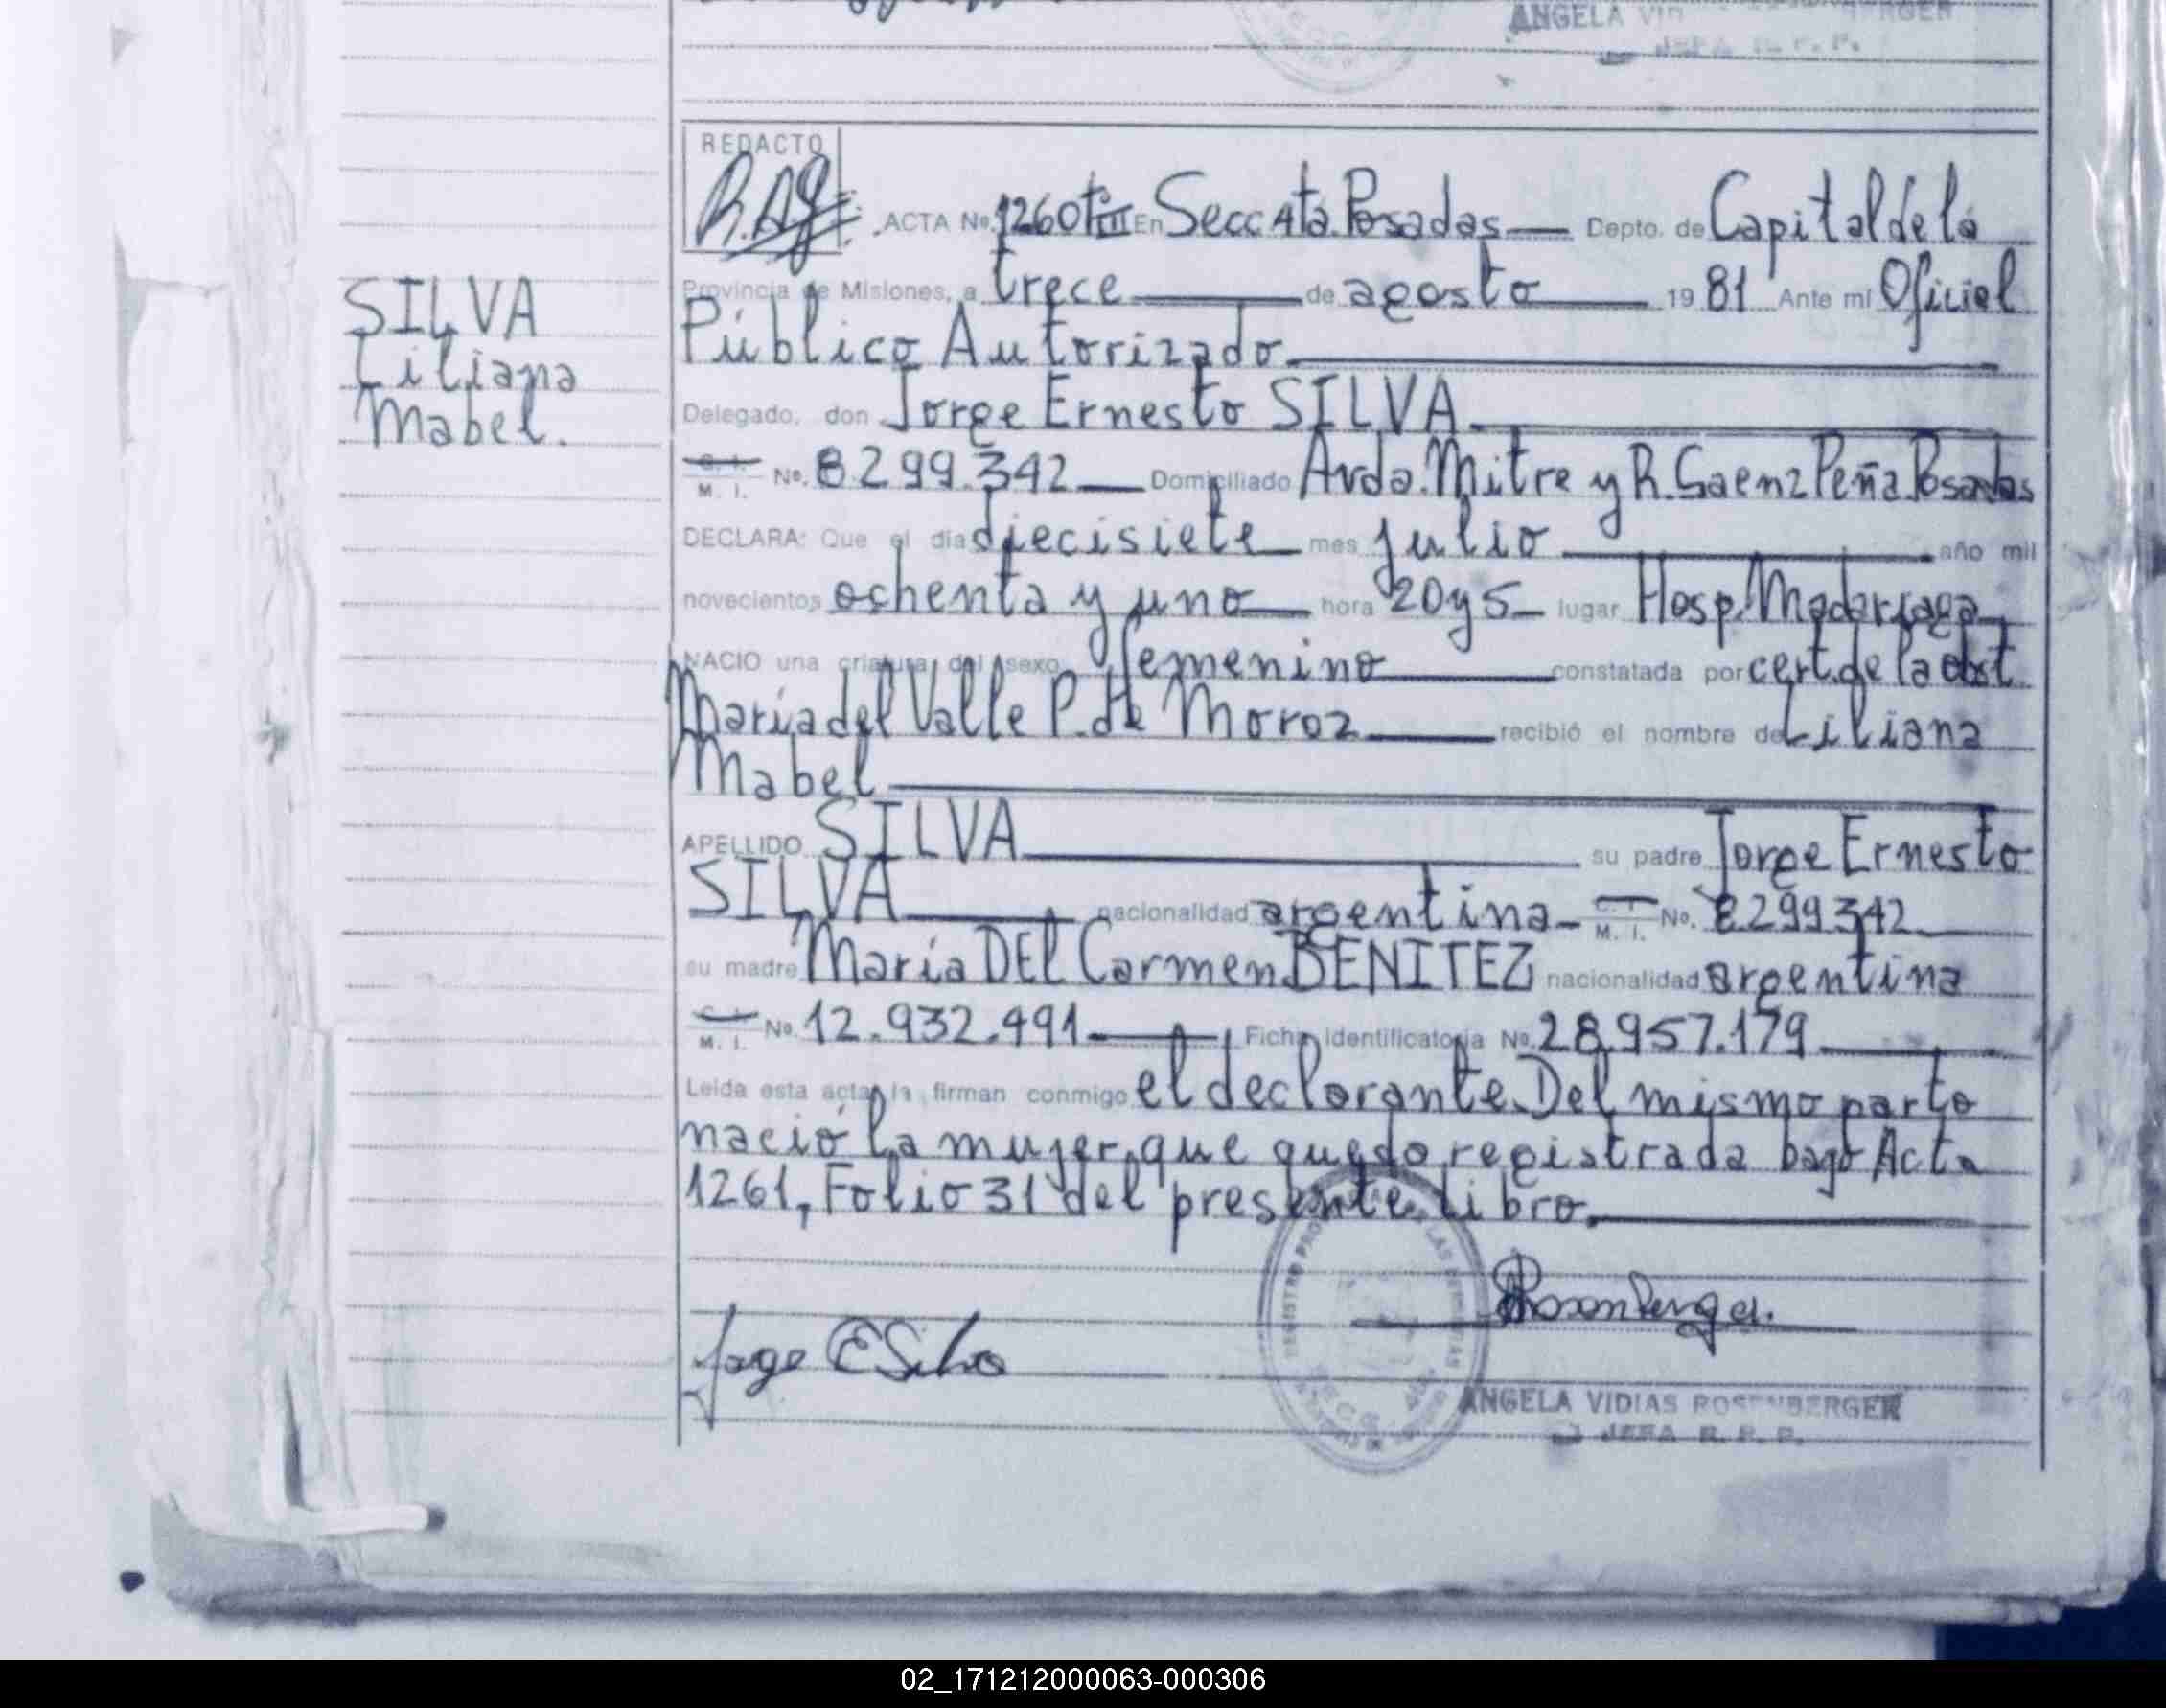 ANGELA VID
JEFA R. P. P.
REDACTO
ACTA No. 1260 TIII En Secc 4ta. Posadas Depto. de Capital de la
Provincia de Misiones, a trece de agosto 1981 Ante mi Oficial
Público Autorizado.
Delegado, don Jorge Ernesto SILVA.
C. I. M. I. No. 8.299.342 Domiciliado Avda. Mitre y R. Saenz Peña Posadas
DECLARA: Que el dia diecisiete mes julio año mil
novecientos ochenta y uno hora 20 y 5 lugar Hosp. Madariaga
NACIO una criatura del sexo femenino constatada por cert. de la obst
María del Valle P. de Moroz recibió el nombre de Liliana
Mabel
APELLIDO SILVA su padre Jorge Ernesto
SILVA nacionalidad argentina C. I. M. I. No. 8299342
su madre María DEl Carmen BENITEZ nacionalidad argentina
C. I. M. I. No. 12.932.491 Ficha identificatoria No. 28.957.179
Leida esta acta, la firman conmigo el declarante. Del mismo parto
nació la mujer, que quedo registrada bajo Acta
1261, Folio 31 del presente libro.
SILVA
Liliana
Mabel.
Jorge E Silva
Rosenberger.
ANGELA VIDIAS ROSENBERGER
JEFA R. P. P.
02_171212000063-000306